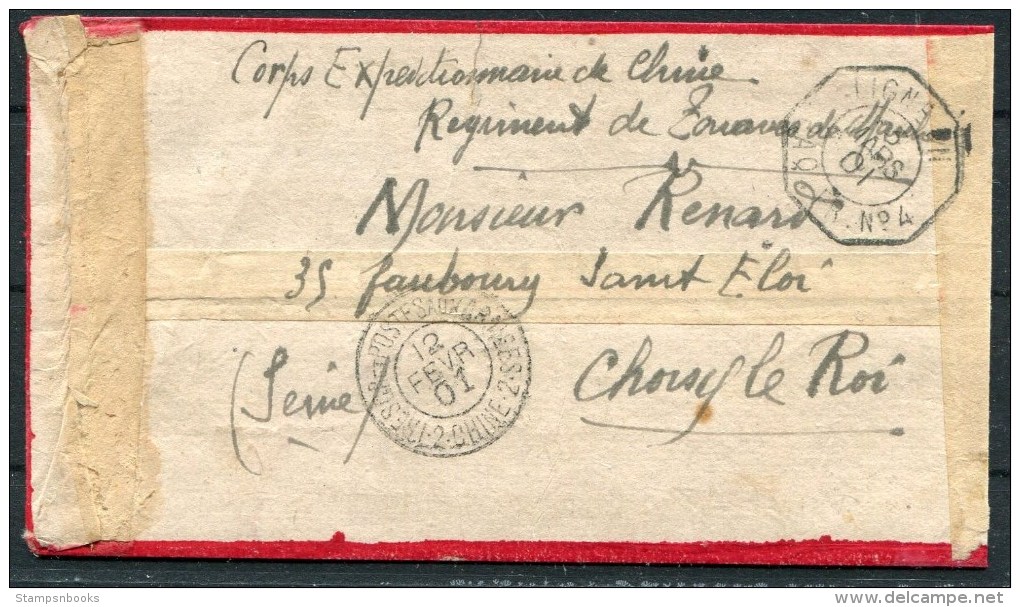 Corps Expeditionnaire de Chine
Regiment de Zouaves de
Monsieur Renard
35 faubourg Saint Éloi
(Seine) Choisy le Roi
LIGNE N
MARS
01
PAQ. FR. Nº 4
TRESOR ET POSTES AUX ARMEES
12
FEVR
01
2·CHINE·2
Stampsnbooks
www.delcampe.net